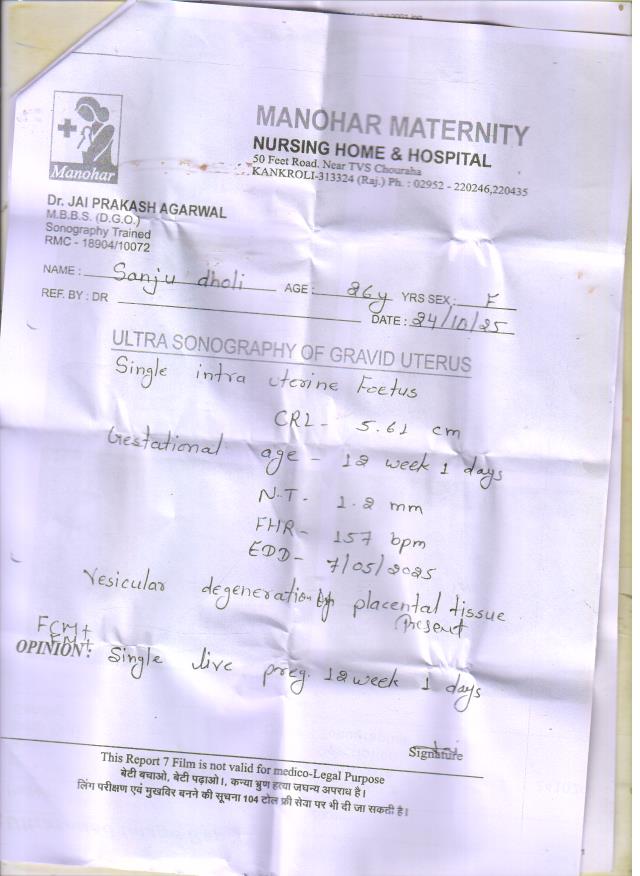 Manohar
MANOHAR MATERNITY
NURSING HOME & HOSPITAL
50 Feet Road. Near TVS Chouraha
KANKROLI-313324 (Raj.) Ph. : 02952 - 220246,220435
Dr. JAI PRAKASH AGARWAL
M.B.B.S. (D.G.O.)
Sonography Trained
RMC - 18904/10072
NAME : Sanju dholi AGE : 26y YRS SEX : F
REF. BY : DR DATE : 24/10/25
ULTRA SONOGRAPHY OF GRAVID UTERUS
Single intra uterine Foetus
CRL- 5.61 cm
Gestational age - 12 week 1 days
N.T- 1.2 mm
FHR- 157 bpm
EDD- 7/05/2025
Vesicular degeneration of placental tissue
Present
FCM+
FM+
OPINION : Single live preg. 12 week 1 days
Signature
This Report 7 Film is not valid for medico-Legal Purpose
बेटी बचाओ, बेटी पढ़ाओ।, कन्या भ्रुण हत्या जघन्य अपराध है।
लिंग परीक्षण एवं मुखविर बनने की सूचना 104 टोल फ्री सेवा पर भी दी जा सकती है।